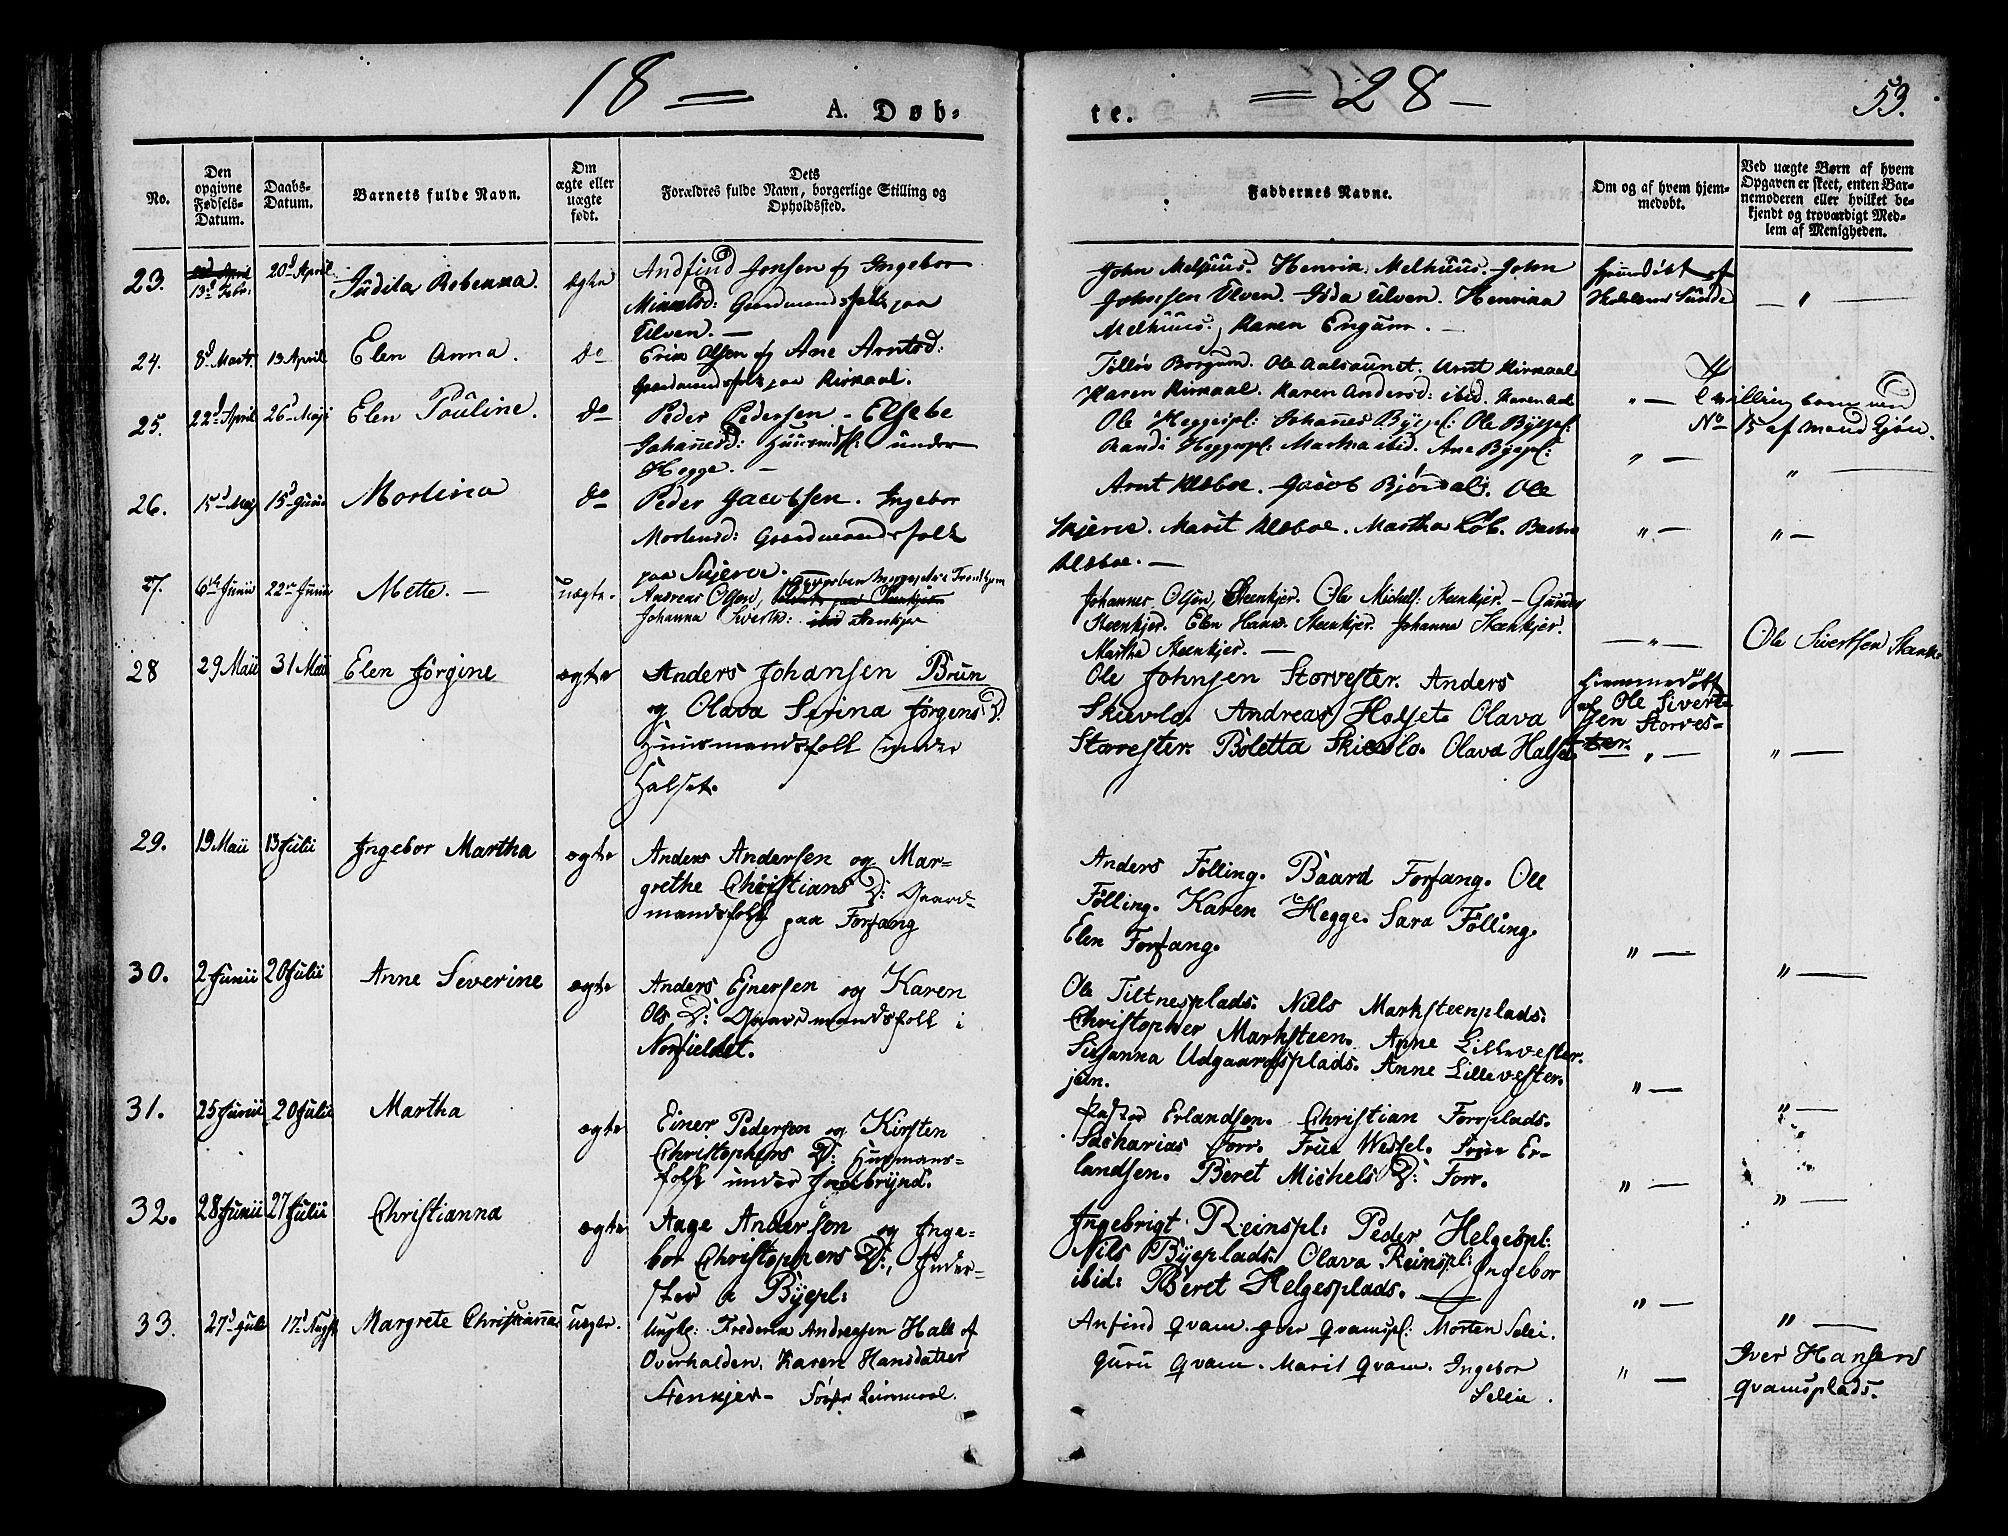 18 = = 28 –
53.
A. Døb-
te.
No.
Den opgivne Fødsels-Datum.
Daabs-Datum.
Barnets fulde Navn.
Om ægte eller uægte født.
Dets Forældres fulde Navn, borgerlige Stilling og Opholdssted.
Faddernes Navne.
Om og af hvem hjem-
medøbt.
Ved uægte Børn af hvem
Opgaven er skeet, enten Bar-
nemoderen eller hvilket be-
kjendt og troværdigt Med-
lem af Menigheden.
23. 13d Febr: 20d April Judita Rebenna. ægte
Andfind Jonsen og Ingebor
Gaardmandsfolk paa
Ulven. —
John Melhuus. Henrik Melhuus. John
Johnsen Ulven. Ulven. Henrika
Melhuus. Karen Engum. —
24. 8d Marts 13 April Elen Anna. do
Erik Olsen og Ane Arntsd:
Gaardmandsfolk paa Kirkaal.
Borgum. Ole Aalsaunet. Arnt Kirkaal
Karen Kirkaal. Karen Andersd: ibid. Karen
25. 22d April 26d Maji Elen Pauline. do
Peder Pedersen – Elsebe
Johanesd: under
Hegge. —
Ole Heggespl: Johannes Byepl: Ole Byepl:
Randi Heggespl: Martha ibid. Ane Byepl:
No 15 af
26. 15d Maj 15d Juni Mortina do
Peder Jacobsen. Ingebor
Mortensd: Gaardmandsfolk
paa Skjerve.
Arnt Klæboe. Jacob Bjørdal. Ole
Skjerve. Marit Klæboe. Martha
Klæboe. —
27. 6te Junii 22de Junii Mette. — uægte.
Andreas Olsen,
Johanna Sivertsd: Stenkjer
Johannes Olsen, Steenkjer. Ole Michels: Steenkjer –
Steenkjer. Elen Hans. Steenkjer. Johanna Steenkjer.
Martha Steenkjer. —
Ole Sivertsen
28 29 Maii 31 Maii Elen Jørgine ægte
Anders Johansen Brun
og Olava Serina Jørgens D.
Huusmandsfolk under
Halset.
Ole Johnsen Storvester. Anders
Skievlo. Andreas Halset. Olava
Storvester. Boletta Skievlo. Olava Halset.
Hiemmedøbt
af Ole Sivert-
sen Storves-
ter.
29. 19 Maii 13 Julii Ingebor Martha ægte
Anders Andersen og Mar-
grethe Christians D: Gaard-
mandsfolk paa Forfang
Anders Følling. Baard Forfang. Ole
Følling. Karen Hegge. Sara Følling.
Elen Forfang.
30. 2 Junii 20 Julii Anne Severine ægte
Anders Ejnersen og Karen
Ols D: Gaardmandsfolk i
Norfieldet.
Ole Tiltnesplads. Niels Marksteenplads.
Christopher Marksteen. Anne Lillevester.
Susanna Udgaardsplads. Anne Lillevester.
jun.
31. 25 Junii 20 Julii Martha ægte
Einer Pedersen og Kirsten
Christophers D: Husmans-
folk under
Pastor Erlandsen. Christian Forrplads.
Sacharias Forr. Frue Wessel. Frue Er-
landsen. Beret Michels D: Forr.
32. 28 Junii 27 Julii Christianna ægte
Aage Andersen og Inge-
bor Christophers D:, Inder-
ster a Byepl:
Ingebrigt Reinspl: Peder Helgespl:
Nils Byeplads. Olava Reinspl: Ingebor
ibid: Beret Helgesplads.
33. 27d Juli 17d Augst Margrete Christianna uægte.
Ungk: Frederik Andreasen Hall af
Overhalden. Karen Hansdatter
Stenkjer –
Anfind Qvam. Iver Qvamspl: Morten Selei.
Guru Qvam. Marit Qvam. Ingebor
Seleie.
Iver Hansen
Qvamsplads.